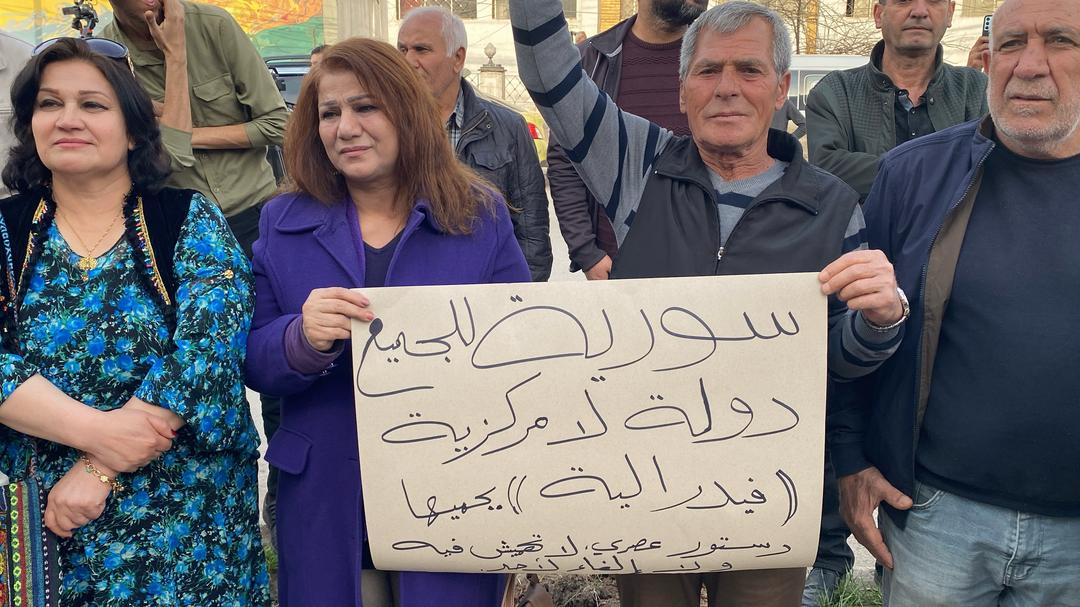 سورية للجميع
دولة لا مركزية
((فيدرالية)) يحميها
دستور عصري، لا تهميش فيه
ولا إلغاء لأحد.